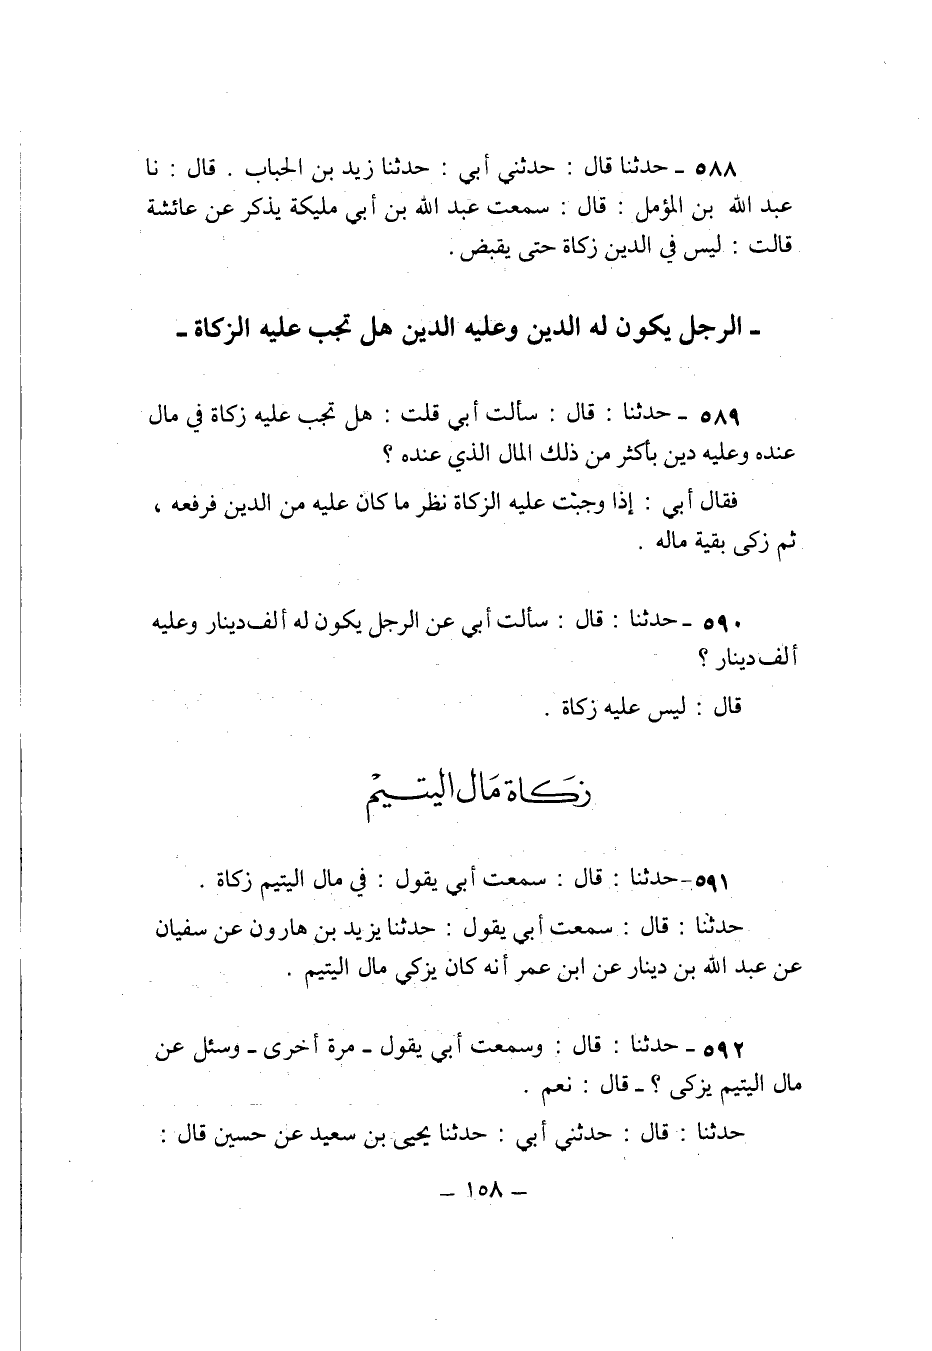 ٥٨٨ - حدثنا قال : حدثني أبي : حدثنا زيد بن الحباب . قال : نا
عبد الله بن المؤمل : قال : سمعت عبد الله بن أبي مليكة يذكر عن عائشة
قالت : ليس في الدين زكاة حتى يقبض .
- الرجل يكون له الدين وعليه الدين هل تجب عليه الزكاة -
٥٨٩ - حدثنا : قال : سألت أبي قلت : هل تجب عليه زكاة في مال
عنده وعليه دين بأكثر من ذلك المال الذي عنده ؟
فقال أبي : إذا وجبت عليه الزكاة نظر ما كان عليه من الدين فرفعه ،
ثم زكى بقية ماله .
٥٩٠ - حدثنا : قال : سألت أبي عن الرجل يكون له ألف دينار وعليه
ألف دينار ؟
قال : ليس عليه زكاة .
زكاة مال اليتيم
٥٩١ - حدثنا : قال : سمعت أبي يقول : في مال اليتيم زكاة .
حدثنا : قال : سمعت أبي يقول : حدثنا يزيد بن هارون عن سفيان
عن عبد الله بن دينار عن ابن عمر أنه كان يزكي مال اليتيم .
٥٩٢ - حدثنا : قال : وسمعت أبي يقول - مرة أخرى - وسئل عن
مال اليتيم يزكى ؟ - قال : نعم .
حدثنا : قال : حدثني أبي : حدثنا يحيى بن سعيد عن حسين قال :
- ١٥٨ -